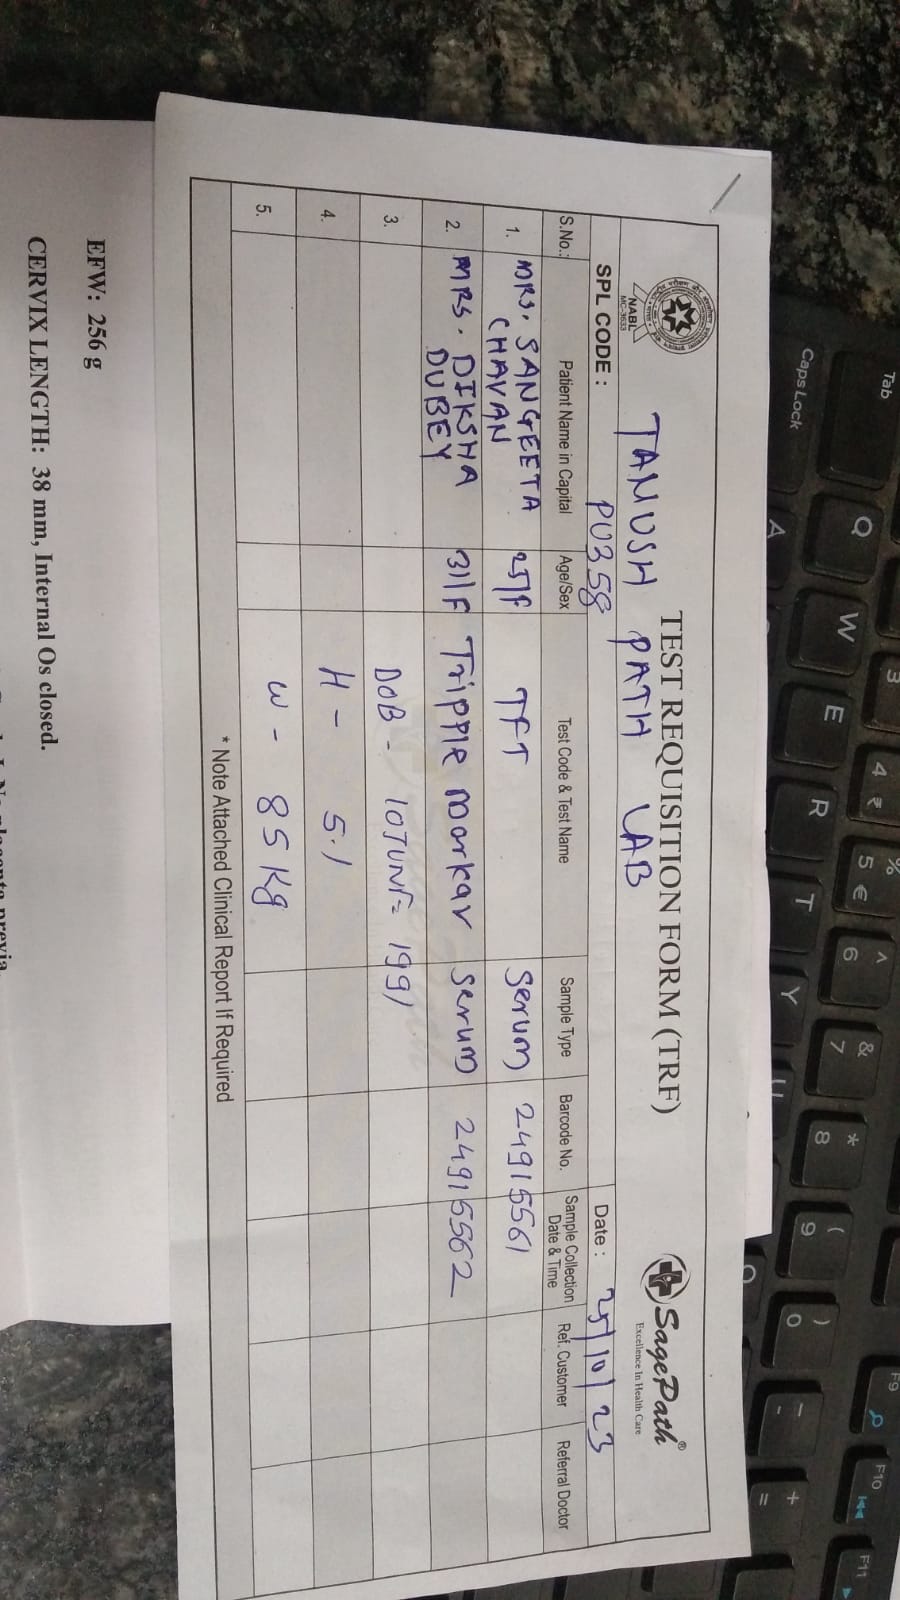 TEST REQUISITION FORM (TRF)
NABL
MC-3633
SagePath®
Excellence In Health Care
TANUSH PATH LAB
SPL CODE : PU358
Date : 25/10/23
S.No.: Patient Name in Capital Age/Sex Test Code & Test Name Sample Type Barcode No. Sample Collection Date & Time Ref. Customer Referral Doctor
1. MRS. SANGEETA CHAVAN 25/F TFT Serum 24915561
2. MRS. DIKSHA DUBEY 31/F Tripple markar Serum 24915562
3. DOB - 10 JUNE= 1991
4. H - 5.1
5. W - 85 Kg
* Note Attached Clinical Report If Required
EFW: 256 g
CERVIX LENGTH: 38 mm, Internal Os closed.
Tab
Caps Lock
Q W E R T Y
A
3
4 ₹
% 5 €
^ 6
& 7
* 8
( 9
) 0
_ -
+ =
F9
F10
F11